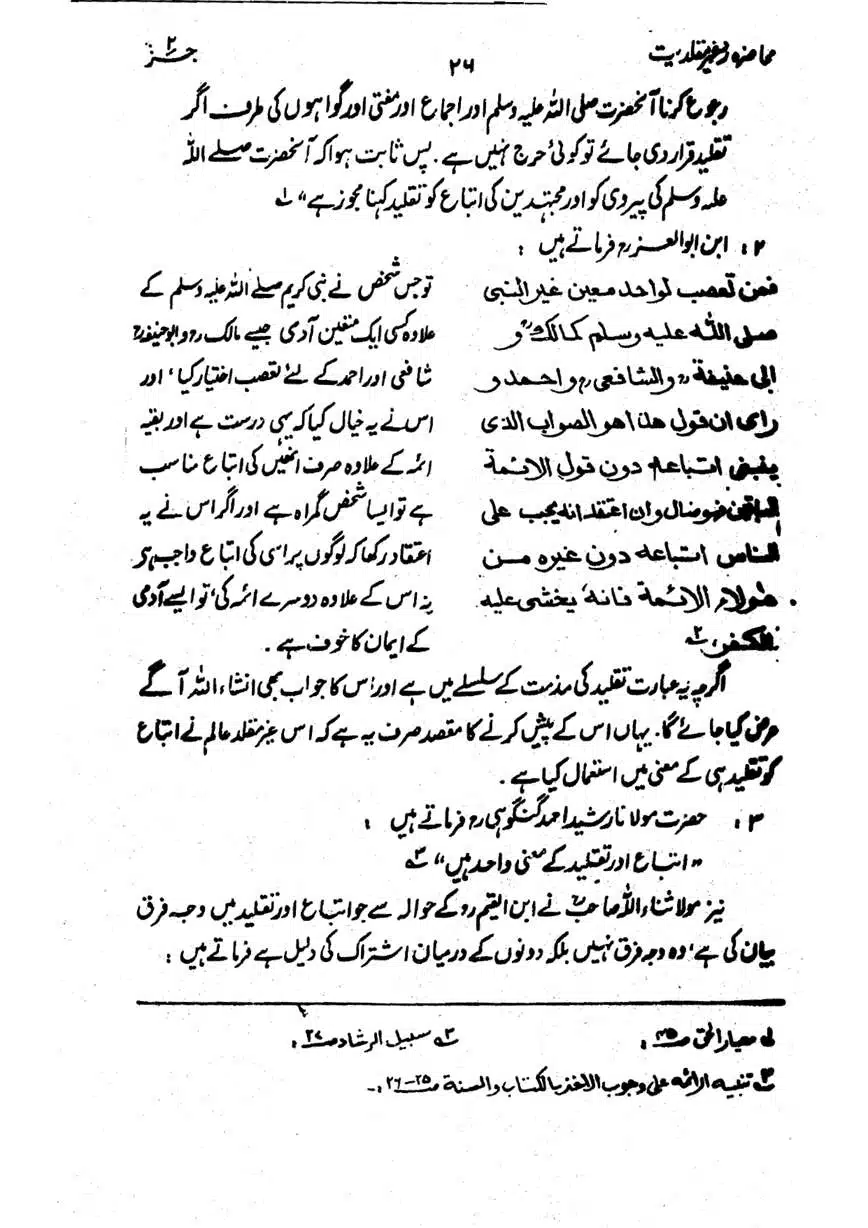 محاضرہ ردِ غیرمقلدیت
۲۶
جزء ۲
رجوع کرنا آنحضرت صلی اللہ علیہ وسلم اور اجماع اور مفتی اور گواہوں کی طرف اگر
تقلید قرار دی جائے تو کوئی حرج نہیں ہے۔ پس ثابت ہوا کہ آنحضرت صلے اللہ
علیہ وسلم کی پیروی کو اور مجتہدین کی اتباع کو تقلید کہنا مجوز ہے“ ۱؎
۲: ابن ابوالعز رہ فرماتے ہیں :
فمن تعصب لواحد معین غیر النبی
صلی اللہ علیہ وسلم کمالک رہ و
ابی حنیفة رہ والشافعی رہ واحمد و
رای ان قول ھذا ھو الصواب الذی
ینبغی اتباعہ دون قول الائمة
الباقین فھو ضال وان اعتقد انہ یجب علی
الناس اتباعہ دون غیرہ من
ھولاء الائمة فانہ یخشی علیہ
الکفر، ۲؎
تو جس شخص نے نبی کریم صلے اللہ علیہ وسلم کے
علاوہ کسی ایک متعین آدمی جیسے مالک رہ و ابوحنیفہ رہ
شافعی اور احمد کے لئے تعصب اختیار کیا، اور
اس نے یہ خیال کیا کہ یہی درست ہے اور بقیہ
ائمہ کے علاوہ صرف انھیں کی اتباع مناسب
ہے تو ایسا شخص گمراہ ہے اور اگر اس نے یہ
اعتقاد رکھا کہ لوگوں پر اسی کی اتباع واجب ہے
نہ اس کے علاوہ دوسرے ائمہ کی، تو ایسے آدمی
کے ایمان کا خوف ہے۔
اگرچہ یہ عبارت تقلید کی مذمت کے سلسلے میں ہے اور اس کا جواب بھی انشاء اللہ آگے
عرض کیا جائے گا۔ یہاں اس کے پیش کرنے کا مقصد صرف یہ ہے کہ اس غیر مقلد عالم نے اتباع
کو تقلید ہی کے معنی میں استعمال کیا ہے۔
۳: حضرت مولانا رشید احمد گنگوہی رہ فرماتے ہیں :
”اتباع اور تقلید کے معنی واحد ہیں“ ۳؎
نیز مولانا ثناء اللہ صاحب رہ نے ابن القیم رہ کے حوالہ سے جو اتباع اور تقلید میں وجہ فرق
بیان کی ہے، وہ وجہ فرق نہیں بلکہ دونوں کے درمیان اشتراک کی دلیل ہے فرماتے ہیں :
۱؎ معیار الحق ص :
۳؎ سبیل الرشاد ص۲۷ :
۲؎ تنبیہ الرائمہ علی وجوب الاخذ بالکتاب والسنة ص۲۵-۲۶ :۔